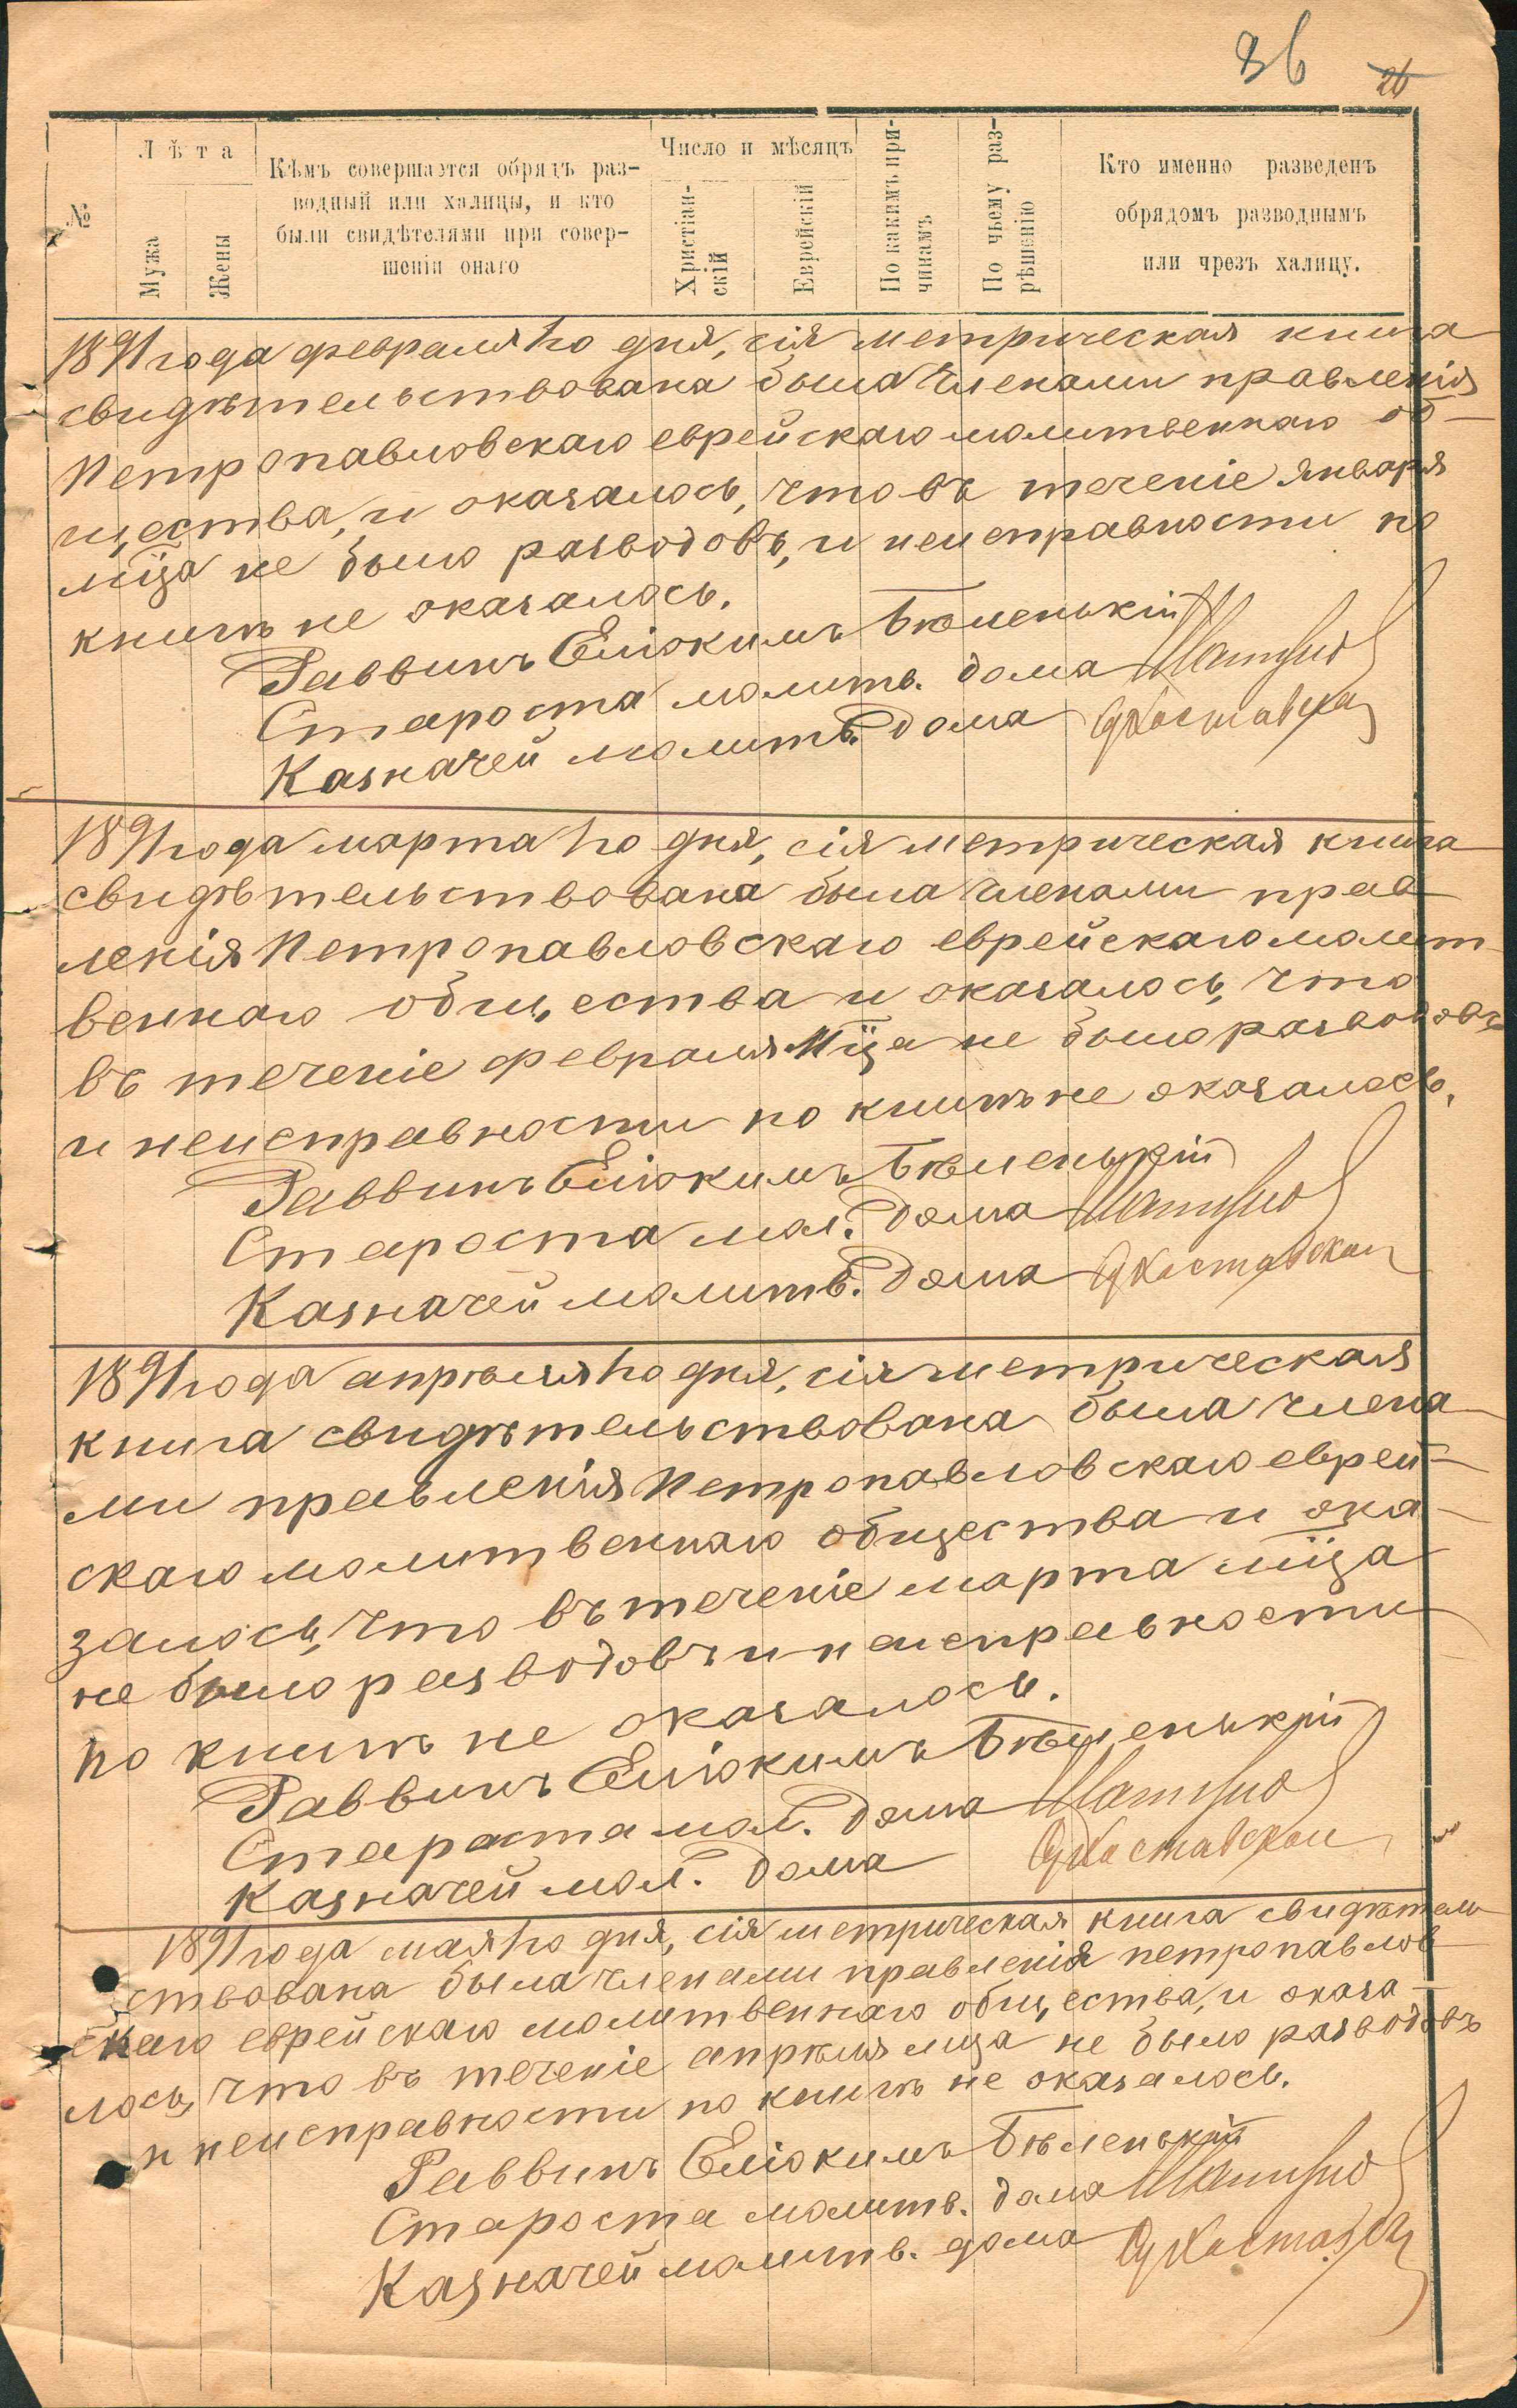 36 26
№
Лѣта
Мужа
Жены
Кѣмъ совершается обрядъ раз-
водный или халицы, и кто
были свидѣтелями при совер-
шеніи онаго
Число и мѣсяцъ
Христіан-
скій
Еврейскій
По какимъ при-
чинамъ
По чьему раз-
рѣшенію
Кто именно разведенъ
обрядомъ разводнымъ
или чрезъ халицу.
1891 года февраля 1го дня, сія метрическая книга
свидѣтельствована была членами правленія
Петропавловскаго еврейскаго молитвеннаго об-
щества, и оказалось, что въ теченіе января
мца не было разводовъ, и неисправности по
книгѣ не оказалось.
Раввинъ Еліокимъ Бѣленькій
Староста молитв. дома
Казначей молитв. дома
1891 года марта 1го дня, сія метрическая книга
свидѣтельствована была членами прав
ленія Петропавловскаго еврейскаго молит-
веннаго общества и оказалось, что
въ теченіе февраля мца не было разводовъ
и неисправности по книгѣ не оказалось.
Раввинъ Еліокимъ Бѣленькій
Староста мол. дома
Казначей молитв. дома
1891 года апрѣля 1го дня, сія метрическая
книга свидѣтельствована была члена-
ми правленія Петропавловскаго еврей-
скаго молитвеннаго общества и ока-
залось, что въ теченіе марта мца
не было разводовъ и неисправности
по книгѣ не оказалось.
Раввинъ Еліокимъ Бѣленькій
Староста мол. дома
Казначей мол. дома
1891 года мая 1го дня, сія метрическая книга свидѣтель
ствована была членами правленія петропавлов-
скаго еврейскаго молитвеннаго общества, и оказа-
лось, что въ теченіе апрѣля мца не было разводовъ
и неисправности по книгѣ не оказалось.
Раввинъ Еліокимъ Бѣленькій
Староста молитв. дома
Казначей молитв. дома